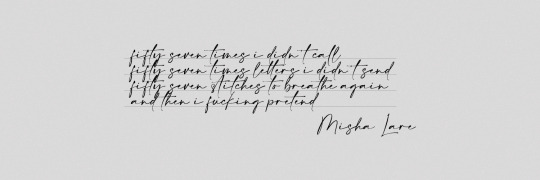 fifty seven times i didn't call
fifty seven times letters i didn't send
fifty seven stitches to breathe again
and then i fucking pretend
Misha Lare